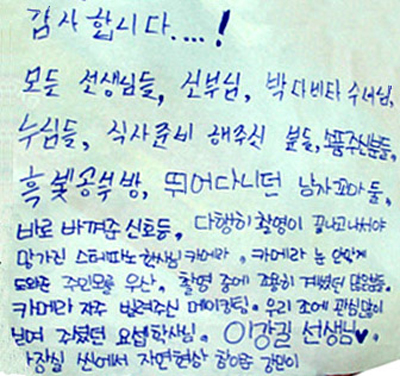 감사합니다....!
모든 선생님들, 신부님, 박다비타 수녀님,
누님들, 식사준비 해주신 분들, 소품주신분들,
흑빛공부방, 뛰어다니던 남자꼬마들,
바로 바껴준 신호등, 다행히 촬영이 끝나고 나서야
망가진 스테파노 학사님 카메라, 카메라 눈 안맞게
도와준 주인모를 우산. 촬영 중에 조용히 계셨던 많은분들.
카메라 자주 빌려주신 메이킹팀. 우리 조에 관심많이
주셨던 요셉학사님. 이강길 선생님♥.
화장실 씬에서 자연현상 참아준 강민이